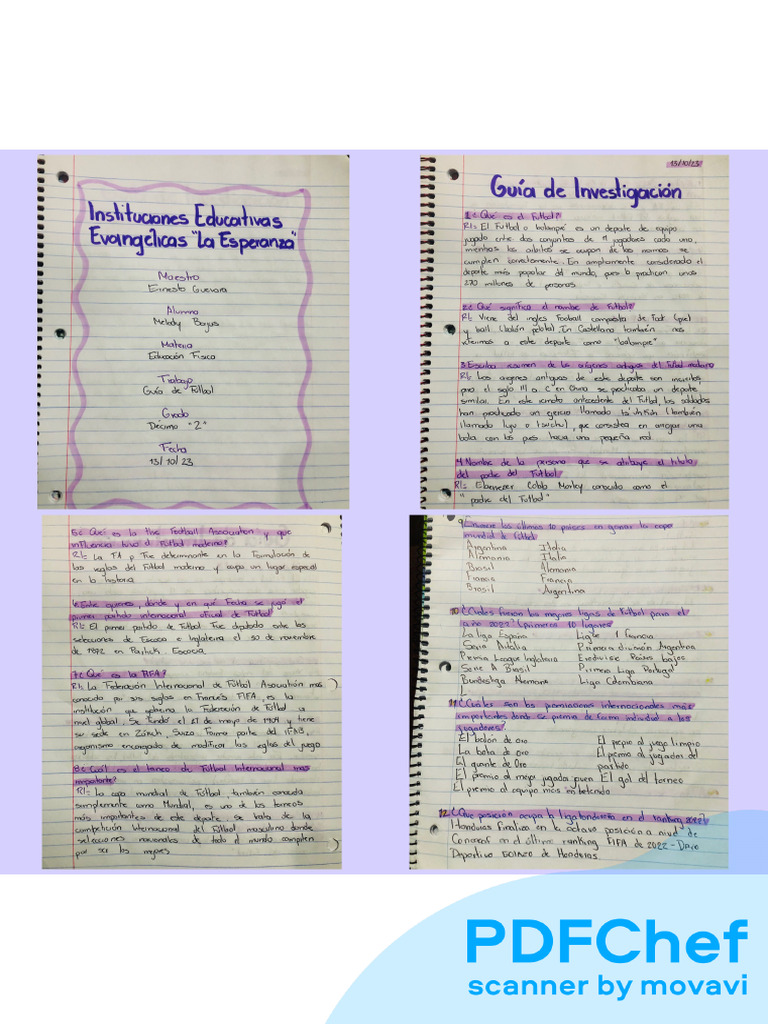 Instituciones Educativas
Evangélicas "La Esperanza"
Maestro
Ernesto Guevara
Alumno
Melody Borjas
Materia
Educación Física
Trabajo
Guía de Fútbol
Grado
Décimo "2"
Fecha
13/10/23
13/10/23
Guía de Investigación
1.¿ Qué es el Futbol?
R// El Futbol o balompié es un deporte de equipo
jugado entre dos conjuntos de 11 jugadores cada uno,
mientras los árbitros se ocupan de las normas se
cumplen correctamente. En ampliamente considerado el
deporte más popular del mundo, pues lo practican unas
270 millones de personas
2.¿ Qué significa el nombre de Futbol?
R// Viene del ingles Football compuesta de Foot (pie)
y ball (balón pelota) En Castellano también nos
referimos a este deporte como "balompié"
3. Escriba resumen de los orígenes antiguos del Futbol moderno
R// Los orígenes antiguos de este deporte son
para el siglo III a. C en China se practicaba un deporte
similar. En este remoto antecedente del Futbol, los soldados
han practicado un ejercicio llamado (también
llamado), que consistia en arrojar una
bola con los pies hacia una pequeña red.
4. Nombre de la persona que se atribuye el título
del padre del Futbol
R// Ebenezer Cobb Morley conocido como el
"padre del Futbol"
5.¿ Qué es la the Football Association y que
influencia tuvo el Futbol moderno?
R// La FA p Fue determinante en la Formulación de
las reglas del Futbol moderno y ocupa un lugar especial
en la historia
6. Entre quienes, donde y en qué Fecha se jugó el
primer partido internacional oficial de Futbol
R// El primer partido de Futbol Fue disputado entre las
selecciones de Escocia e Inglaterra el 30 de noviembre
de 1872 en Partick, Escocia
7.¿ Qué es la FIFA?
R// La Federación Internacional de Fútbol Asociación más
conocida por sus siglas en Francés FIFA, es la
institución que gobierna la Federación de Futbol a
nivel global, Se Fundó el 21 de mayo de 1904 y tiene
su sede en Zúrich, Suiza. Forma parte del IFAB,
organismo encargado de modificar las reglas del juego
8.¿ Cuál es el torneo de Futbol Internacional mas
importante?
R// La copa mundial de Futbol también conocida
simplemente como Mundial, es uno de los torneos
más importantes de este deporte, se trata de la
competición Internacional del Futbol masculino donde
selecciones nacionales de todo el mundo compiten
por ser los mejores
9. Enumere los últimos 10 paises en ganar la copa
mundial de futbol
Argentina Italia
Alemania Italia
Brasil Alemania
Francia Francia
Brasil Argentina
10. ¿Cuáles fueron las mejores ligas de Futbol para el
año 2022? (primeros 10 lugares)
La liga España Ligue 1 Francia
Serie A Italia Primera división Argentina
Premia League Inglaterra Eredivise Paises bajos
Serie A Brasil Primera Liga Portugal
Bundesliga Alemana Liga Colombiana
11. ¿Cuáles son las premiaciones internacionales mas
importantes donde se premia de forma individual a los
jugadores?
El balón de oro El premio al juego limpio
La bota de oro El premio al jugador del
El guante de Oro partido
El premio al mejor jugador joven El gol del torneo
El premio al equipo mas entretenido
12. ¿Que posición ocupa la liga hondureña en el ranking 2022?
Honduras finalizo en la octava posición a nivel de
Concacaf en el último ranking FIFA de 2022 - Diario
Deportivo de Honduras
PDFChef
scanner by movavi